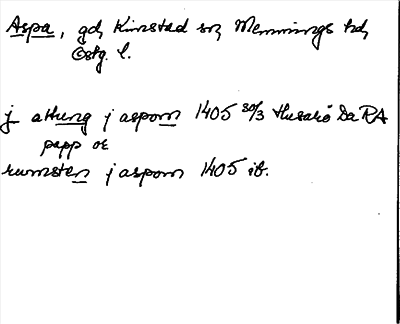 Aspa, gd, Kimstad sn, Memmings hd,
Östg. l.
j attung j aspom 1405 30/3 Husarö Da RA
papp or
rwmsten j aspom 1405 ib.